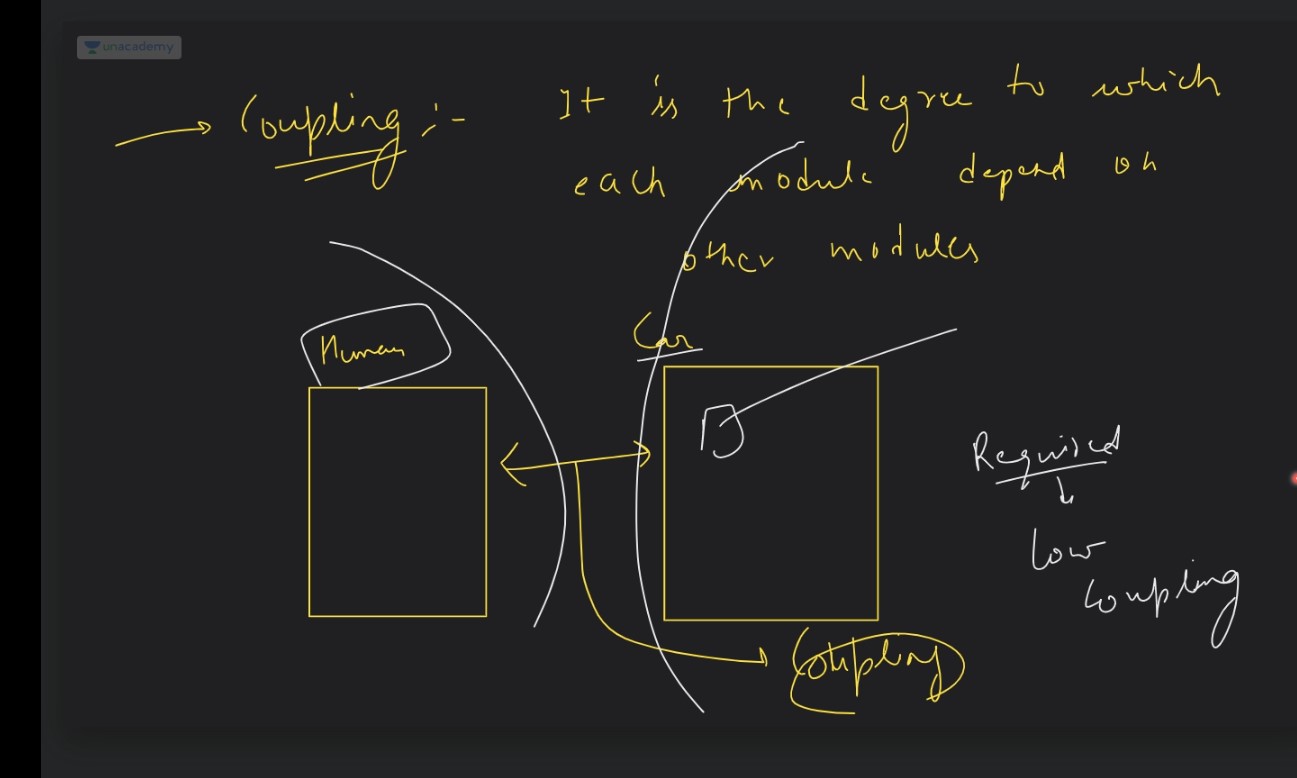 unacademy
Coupling :- It is the degree to which
each module depend on
other modules
Human
Car
Required
↓
Low
Coupling
Coupling